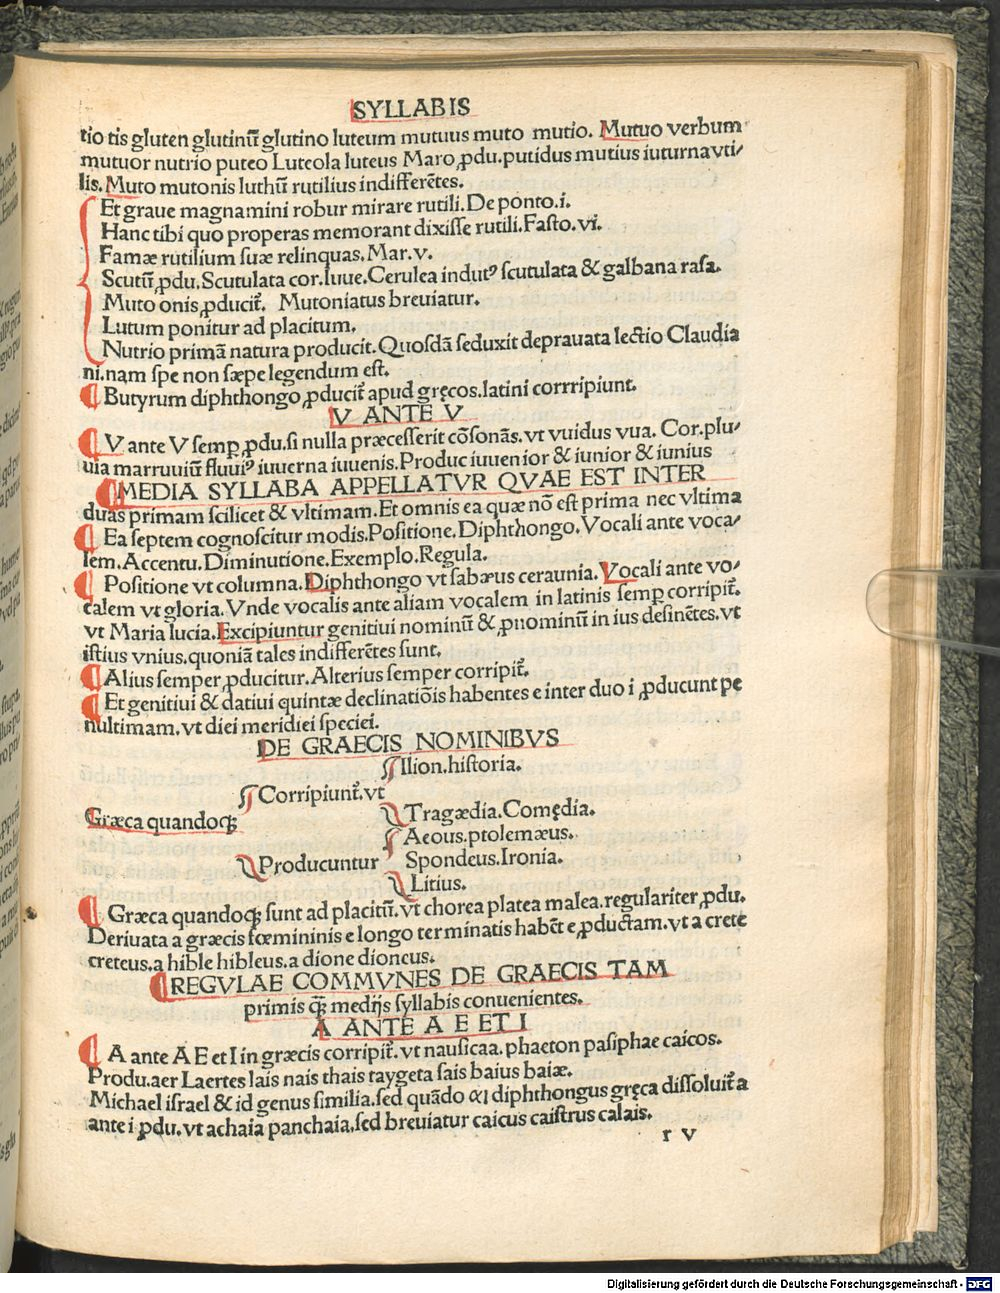 SYLLABIS
tio tis gluten glutinũ glutino luteum mutuus muto mutio. Mutuo verbum
mutuor nutrio puteo Luteola luteus Maro ꝓdu. putidus mutius iuturna vti/
lis. Muto mutonis luthũ rutilius indifferẽtes.
Et graue magnamini robur mirare rutili. De ponto. i.
Hanc tibi quo properas memorant dixisse rutili. Fasto. vi.
Famæ rutilium suæ relinquas. Mar. v.
Scutũ ꝓdu. Scutulata cor. Iuue. Cerulea indutꝰ scutulata & galbana rasa.
Muto onis ꝓducit᷑. Mutoniatus breuiatur.
Lutum ponitur ad placitum.
Nutrio primã natura producit. Quosdã seduxit deprauata lectio Claudia
ni. nam spe non sæpe legendum est.
¶ Butyrum diphthongo ꝓducit᷑ apud gręcos. latini corrripiunt.
V ANTE V
¶ V ante V semꝑ ꝓdu. si nulla præcesserit cõsonãs. vt vuidus vua. Cor. plu/
uia marruuiũ fluuiꝰ iuuerna iuuenis. Produc iuuenior & iunior & iunius
¶ MEDIA SYLLABA APPELLATVR QVAE EST INTER
duas primam scilicet & vltimam. Et omnis ea quæ nõ est prima nec vltima
¶ Ea septem cognoscitur modis. Positione. Diphthongo. Vocali ante voca/
lem. Accentu. Diminutione. Exemplo. Regula.
¶ Positione vt columna. Diphthongo vt sabæus ceraunia. Vocali ante vo/
calem vt gloria. Vnde vocalis ante aliam vocalem in latinis semꝑ corripit᷑.
vt Maria lucia. Excipiuntur genitiui nominũ & ꝓnominũ in ius desinẽtes. vt
istius vnius. quoniã tales indifferẽtes sunt.
¶ Alius semper ꝓducitur. Alterius semper corripit᷑.
¶ Et genitiui & datiui quintæ declinatiõis habentes e inter duo i ꝓducunt pe
nultimam. vt diei meridiei speciei.
DE GRAECIS NOMINIBVS
Ilion. historia.
Corripiunt᷑. vt
Tragædia. Comędia.
Græca quandoqꝫ
Aeous. ptolemæus.
Producuntur Spondeus. Ironia.
Litius.
¶ Græca quandoqꝫ sunt ad placitũ. vt chorea platea malea. regulariter ꝓdu.
Deriuata a græcis fœmininis e longo terminatis habẽt e ꝓductam. vt a crete
creteus. a hible hibleus. a dione dioneus.
¶ REGVLAE COMMVNES DE GRAECIS TAM
primis q̃ꝫ medijs syllabis conuenientes.
A ANTE A E ET I
¶ A ante A E et I in græcis corripit᷑. vt nausicaa. phaeton pasiphae caicos.
Produ. aer Laertes lais nais thais taygeta sais baius baiæ.
Michael israel & id genus similia. sed quãdo αι diphthongus gręca dissoluit᷑ a
ante i ꝓdu. vt achaia panchaia. sed breuiatur caicus caistrus calais.
r v
Digitalisierung gefördert durch die Deutsche Forschungsgemeinschaft - DFG